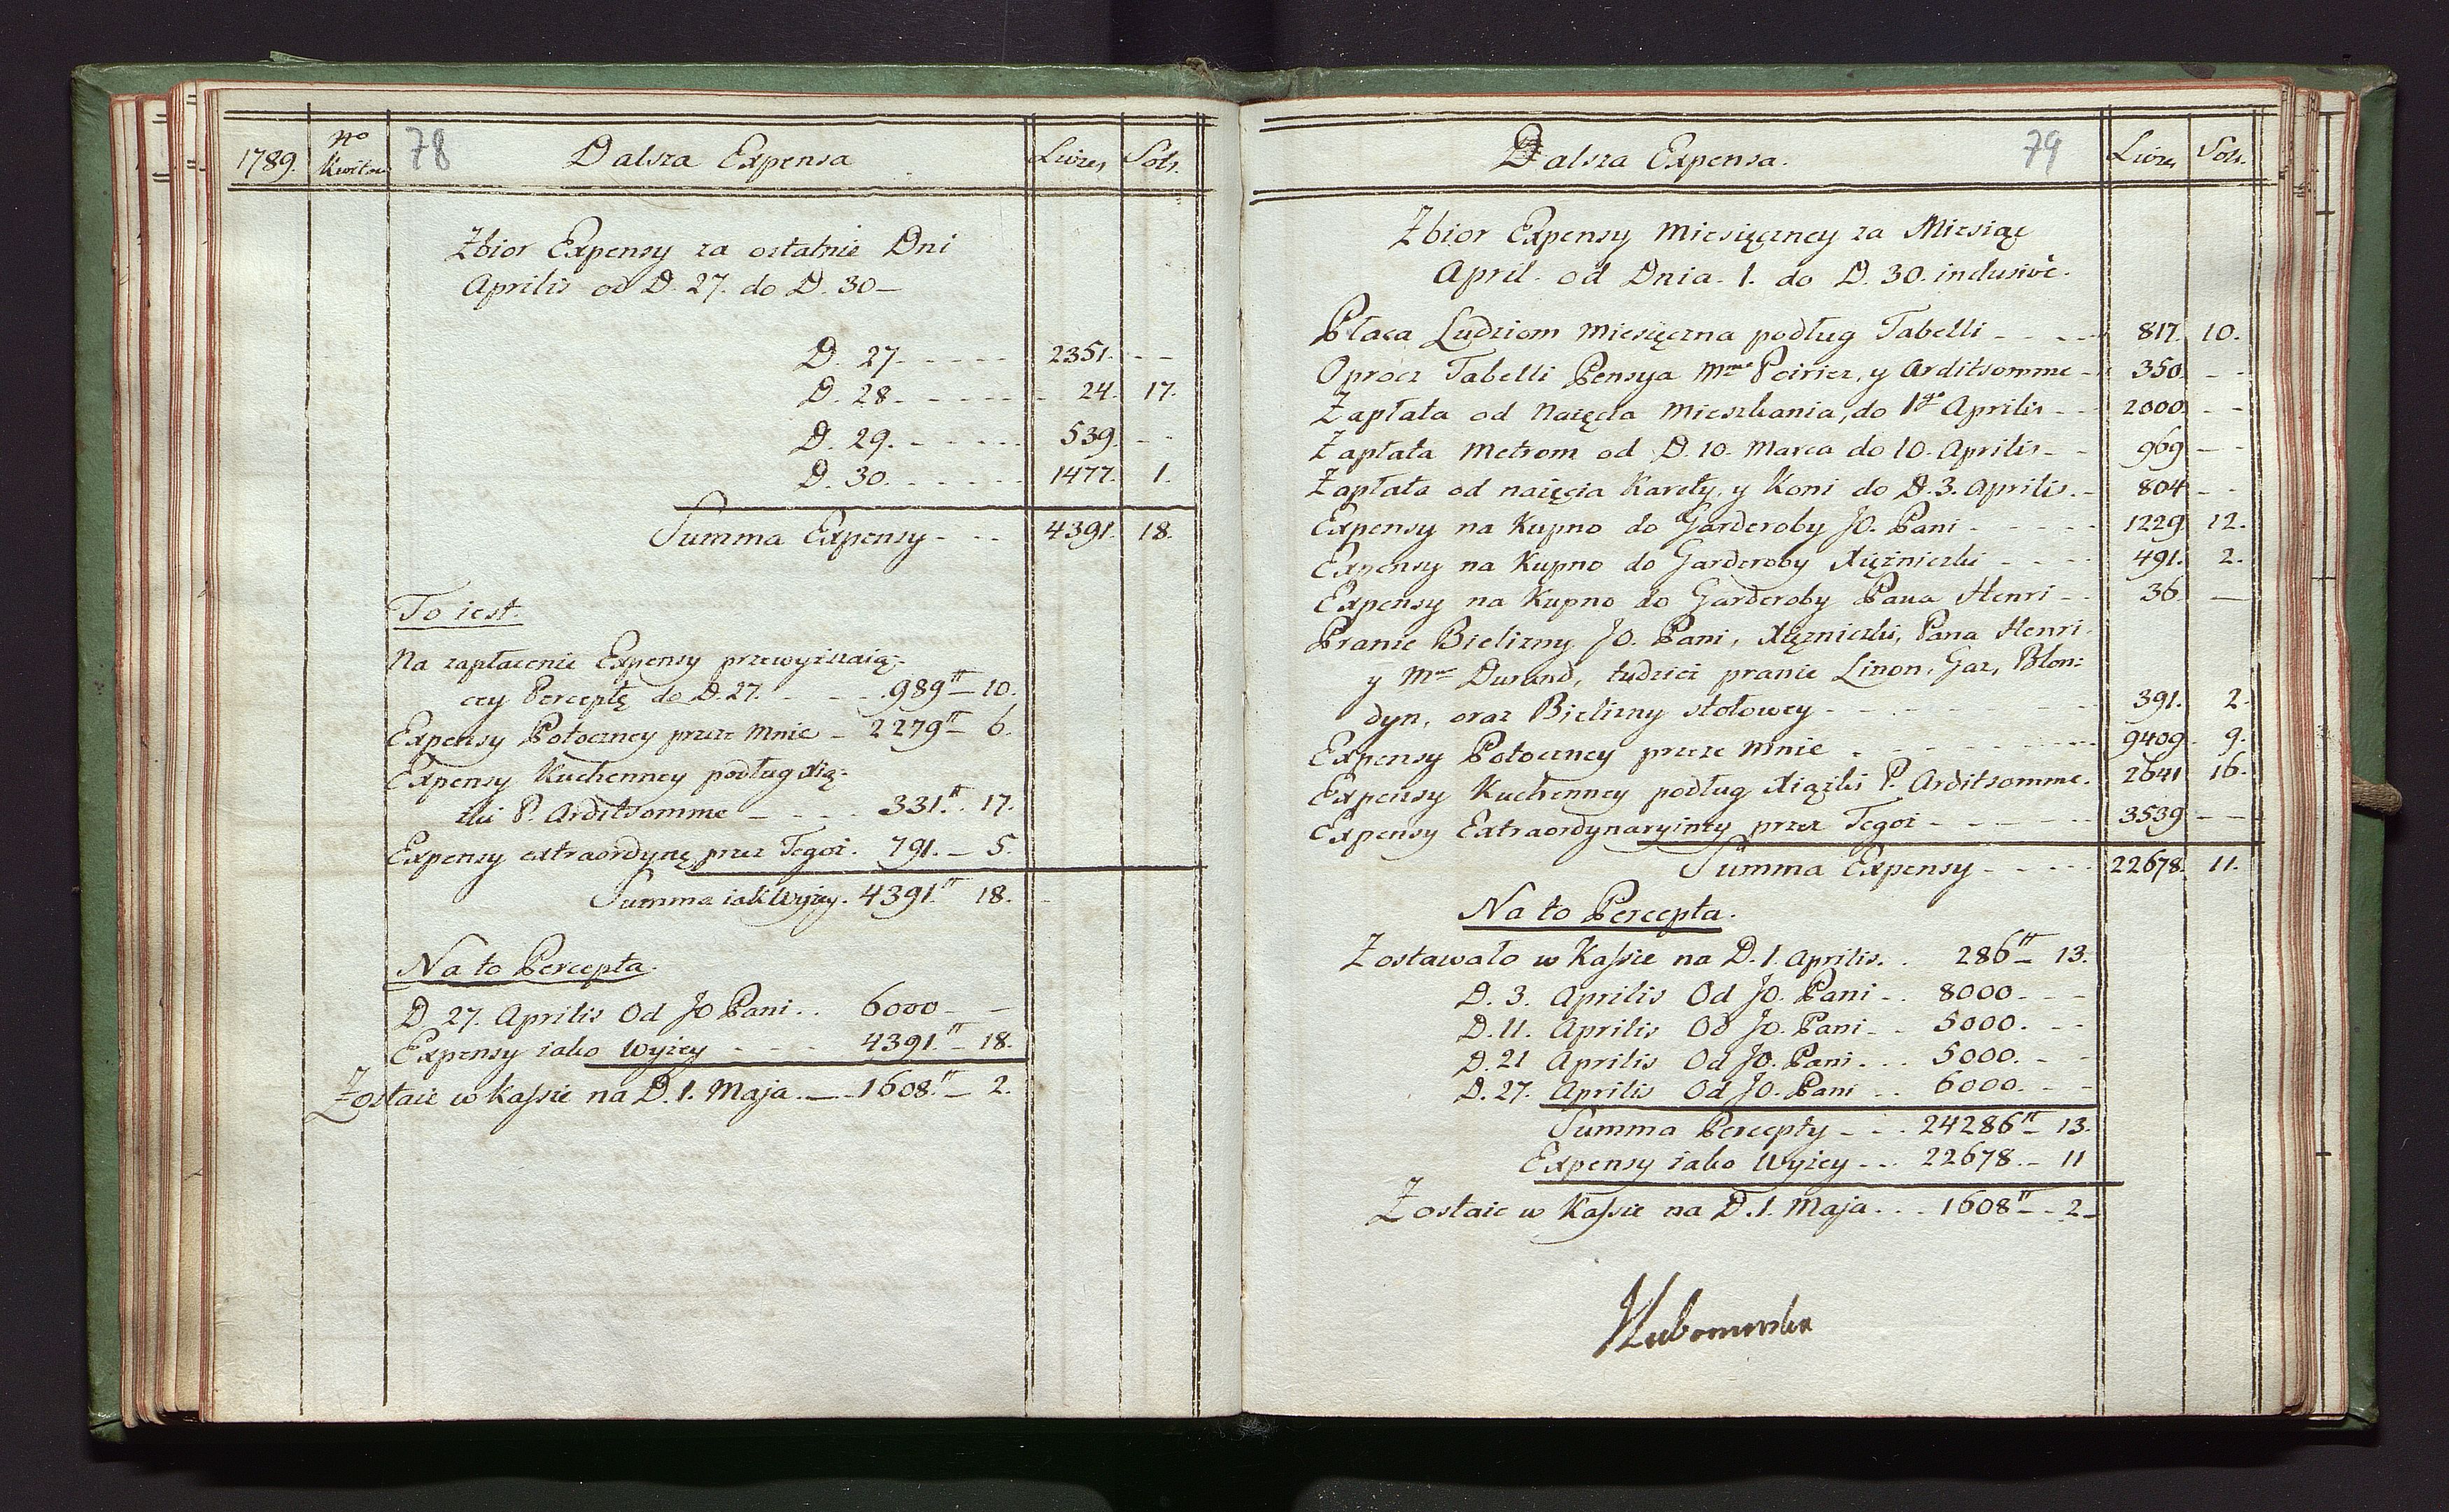 1789. No Kwitu 78 Dalsza Expensa Livres Sols.
Zbior Expensy za ostatnie Dni
Aprilis od D. 27. do D. 30 –
D. 27 - - - - - 2351. - -
D. 28 - - - - - 24. 17.
D. 29. - - - - - 539. - -
D. 30. - - - - - 1477. 1.
Summa Expensy - - - 4391. 18.
To iest.
Na zapłacenie Expensy przewyższaią-
cey Perceptę do D. 27. - - - 989.tt – 10.
Expensy Potoczney przez mnie – 2279tt – 6.
Expensy Kuchenney podług Xią-
żki P. Arditsomme – - - - 331.tt 17.
Expensy extraordynę przez Tegoż. 791. – 5.
Summa iak Wyżey. 4391.tt 18.
Na to Percepta.
D 27. Aprilis Od JO Pani . . 6000 – –
Expensy iako Wyżey - - - 4391.tt – 18.
Zostaie w Kassie na D. 1. Maja. – 1608.tt – 2.
Dalsza Expensa. 79 Livres Sols.
Zbior Expensy Miesięczney za Miesiąc
April. od Dnia 1. do D. 30. inclusivè.
Płaca Ludziom miesięczna podług Tabelli - - - - 817. 10.
Oprocz Tabelli Pensya Mme Poirier, y Arditsomme - 350. - -
Zapłata od Naięcia Mieszkania, do 1go Aprilis - - 2000. - -
Zapłata Metrom od D. 10. Marca do 10. Aprilis - - 969 - -
Zapłata od naięcia Karety, y Koni do D. 3. Aprilis. - 804 - -
Expensy na Kupno do Garderoby JO. Pani - - - - - 1229 12.
Expensy na Kupno do Garderoby Xiężniczki - - - - 491. 2.
Expensy na Kupno do Garderoby Pana Henri - - 36. —
Pranie Bielizny JO. Pani, Xiężniczki, Pana Henri.
y Me Durand, tudzież pranie Linon, Gaz, Blon:
dyn, oraz Bielizny stołowey - - - - - 391. 2.
Expensy Potoczney przeze mnie . - - - - - 9409. 9.
Expensy Kuchenney podług Xiążki P. Arditsomme. 2641 16.
Expensy Extraordynaryiney przez Tegoż - - - - - 3539 - -
Summa Expensy - - - - 22678. 11.
Na to Percepta.
Zostawało w Kassie na D. 1. Aprilis. . 286tt – 13.
D. 3. Aprilis Od JO. Pani - . 8000 - - -
D. 11. Aprilis Od JO. Pani - . 5000. - -
D. 21 Aprilis Od JO. Pani . . . 5000. - -
D. 27. Aprilis Od JO. Pani . . 6000. - -
Summa Percepty - - . 24286tt – 13.
Expensy iako Wyżey - . . 22678. – 11
Zostaie w Kassie na D. 1. Maja . . . 1608tt – . 2 –
Lubomirska